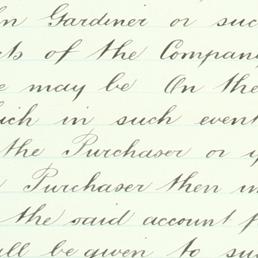 Gardiner or suc
of the Company
may be On the
in such event
the Purchaser or
Purchaser then
the said account
be given to